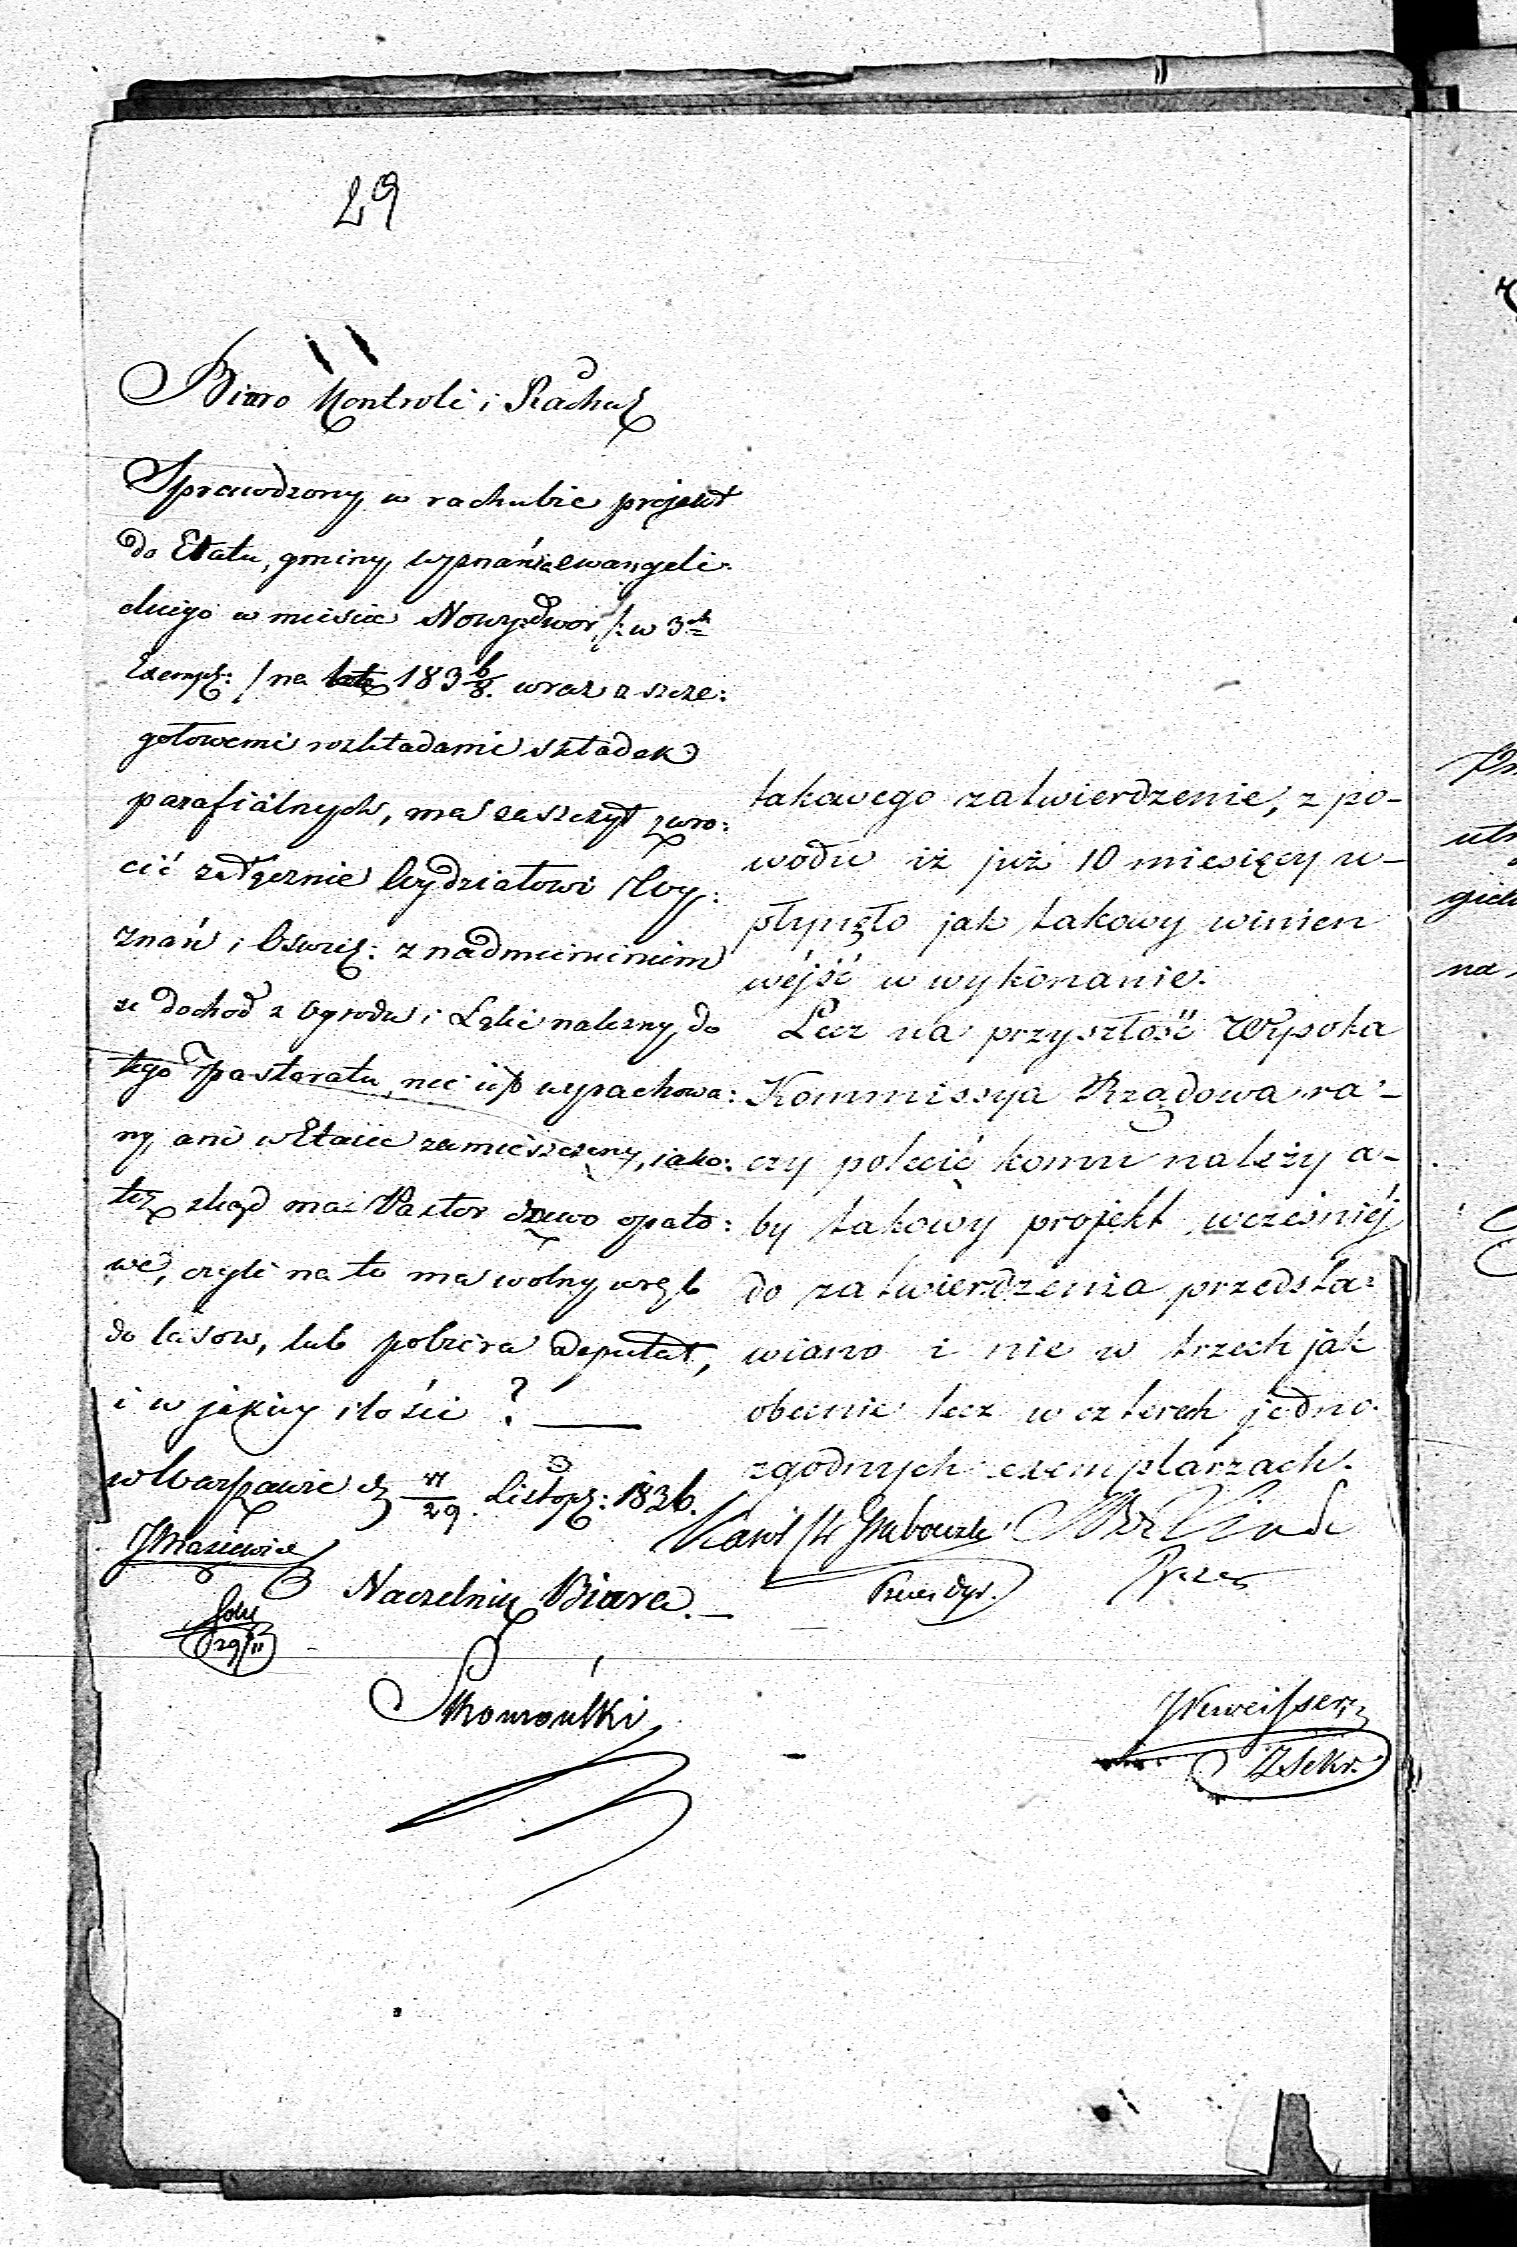 29
Biuro Kontroli i Rachuӡ
Sprawdzony w rachubie projekt
do Etatu, gminy wyznania ewangeli-
ckiego w mieście Nowydwor /: w 3ch
Exempl: / na 183 6/8. wraz z szcze:
gołowemi rozkładami składek
parafialnych, ma zaszczyt zwro:
cić załącznie Wydziałowi Wy:
znań i Oświe: z nadmienieniem
że dochod z Ogrodu i Łąki należny do
tego Pastoratu, nie jest wyrachowa:
ny, ani w Etacie zamieszczony, iako:
też zkąd ma Pastor drzewo opało:
we, czyli na to ma wolny wręb
do lasow, lub pobiera deputat,
i w jakiey ilości ? —
w Warszawie d. 17/29 Listop: 1836.
Naczelnik Biura. —
29/11
takowego zatwierdzenie, z po-
wodu iż już 10 miesięcy u-
płynęło jak takowy winien
wejść w wykonanie.
Lecz na przyszłość Wysoka
Kommissya Rządowa ra-
czy polecić komu należy a-
by takowy projekt wcześniéj
do zatwierdzenia przedsta:
wiano i nie w trzech jak
obecnie lecz w czterech jedno-
zgodnych exemplarzach.
Prezes Dyr.
Prezes
Z Sekr.